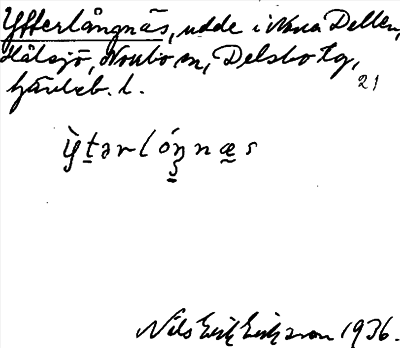 Ytterlångnäs, udde i Norra Dellen,
Hålsjö, Norrbo sn, Delsbo tg,
Gävleb. l. 21
ỳt̲ərlóŋnæ̲s
Nils Erik Eriksson 1936.